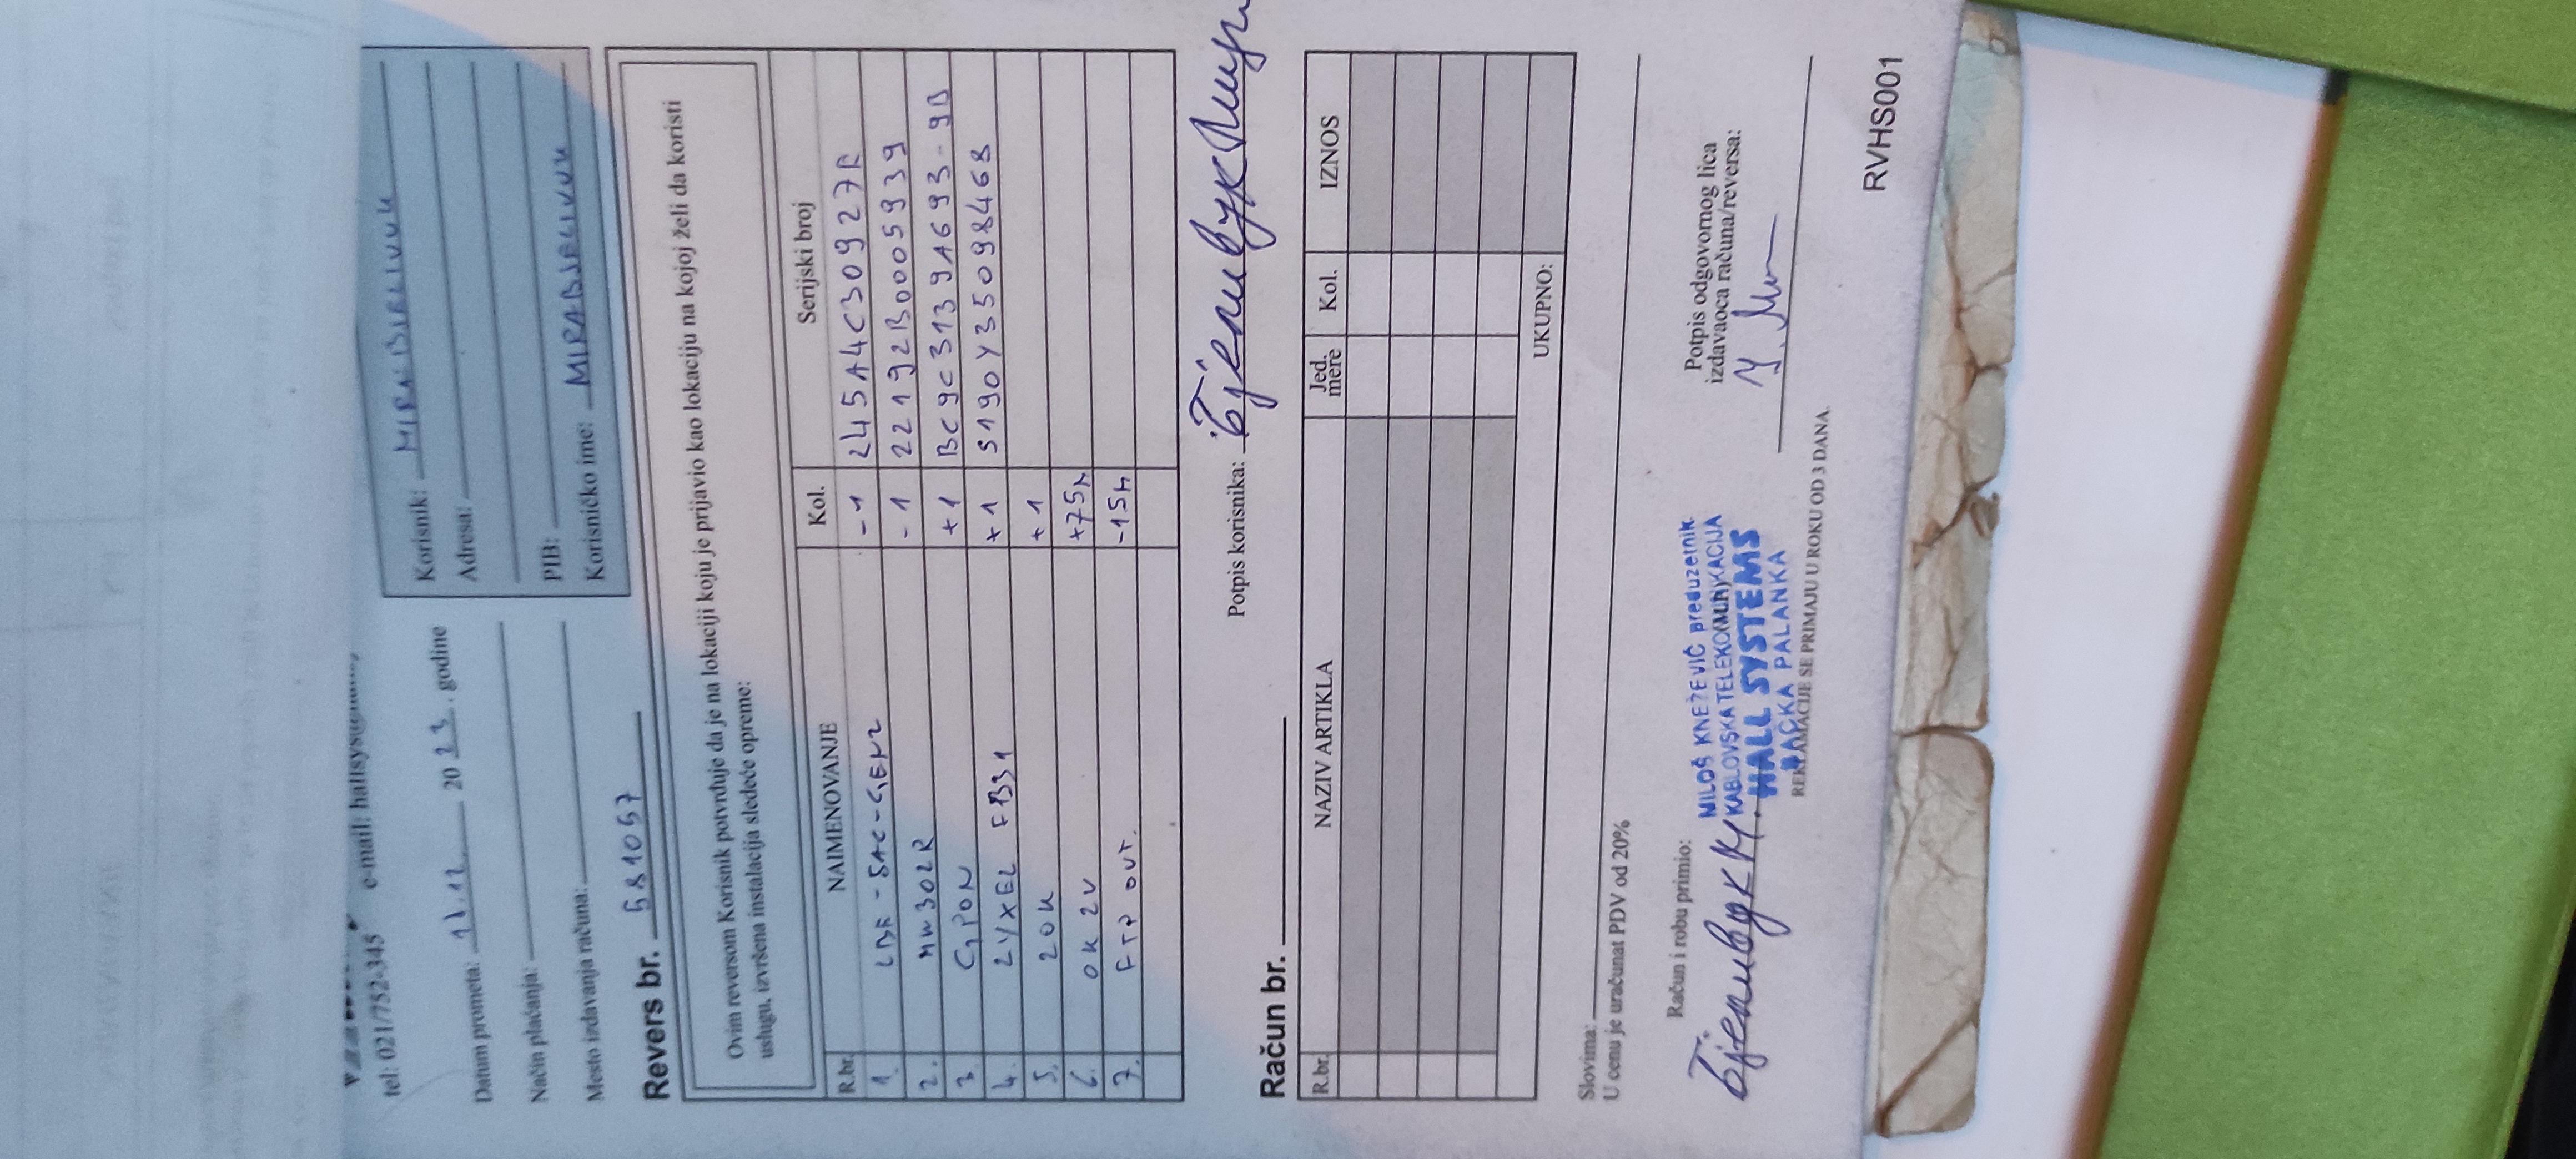 tel: 021/752-345 e-mail: hallsys@
Datum prometa: 11.12. 2023. godine
Način plaćanja:
Mesto izdavanja računa:
Korisnik: MIRABJELIVUK
Adresa:
PIB:
Korisničko ime: MIRABJELIVUK
Revers br. 581067
Ovim reversom Korisnik potvrđuje da je na lokaciji koju je prijavio kao lokaciju na kojoj želi da koristi
uslugu, izvršena instalacija sledeće opreme:
R.br. NAIMENOVANJE Kol. Serijski broj
1. LBE-5AC-GEN2 -1 245A4C30927A
2. MW302R -1 22192B0005939
3. GPON +1 BC9C3139A693-9B
4. ZYXEL FB31 +1 S190Y35098468
5. 20K +1
6. OK 2V +75m
7. FTP OUT. -15m
Potpis korisnika:
Račun br.
R.br. NAZIV ARTIKLA Jed. mere Kol. IZNOS
UKUPNO:
Slovima:
U cenu je uračunat PDV od 20%
Račun i robu primio:
MILOŠ KNEŽEVIĆ preduzetnik
KABLOVSKA TELEKOMUNIKACIJA
HALL SYSTEMS
BAČKA PALANKA
Potpis odgovornog lica
izdavaoca računa/reversa:
REKLAMACIJE SE PRIMAJU U ROKU OD 3 DANA.
RVHS001